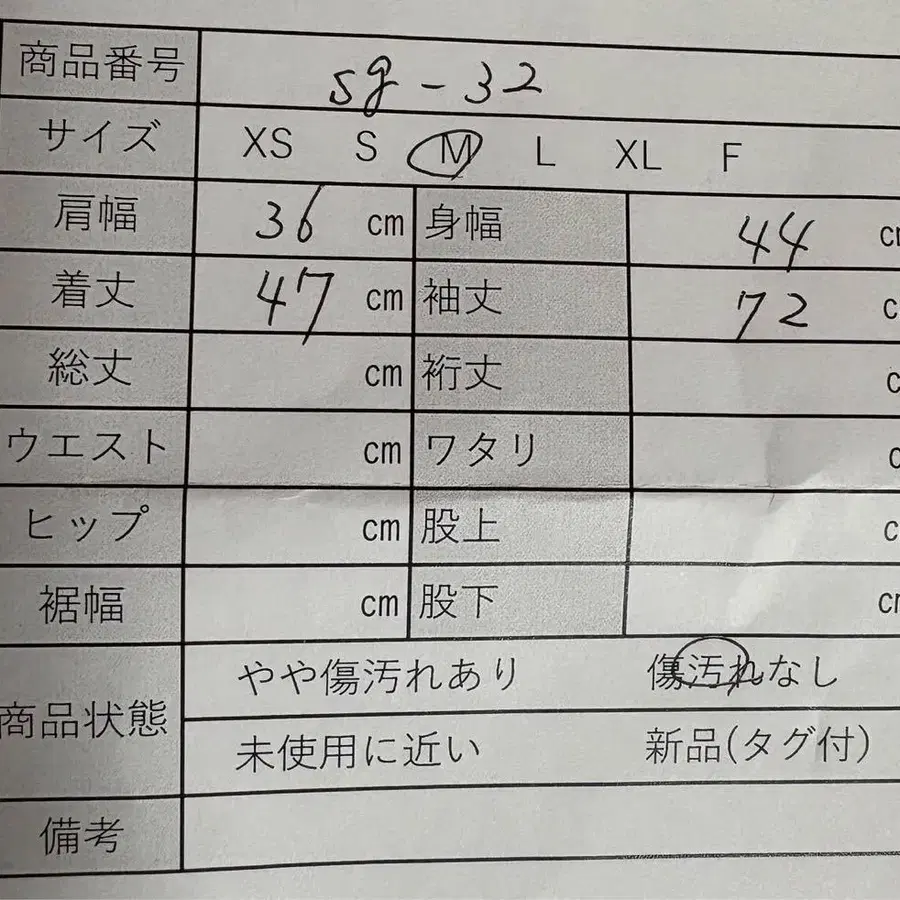 商品番号 sg-32
サイズ XS S M L XL F
肩幅 36 cm 身幅 44 cm
着丈 47 cm 袖丈 72 c
総丈 cm 裄丈 c
ウエスト cm ワタリ c
ヒップ cm 股上 c
裾幅 cm 股下 cm
商品状態 やや傷汚れあり 傷汚れなし
未使用に近い 新品(タグ付)
備考